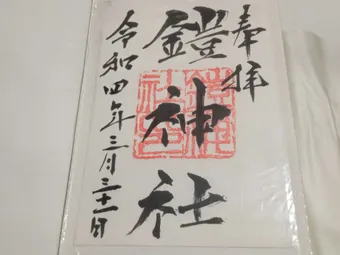 奉拝
鎧神社
令和四年三月三十一日